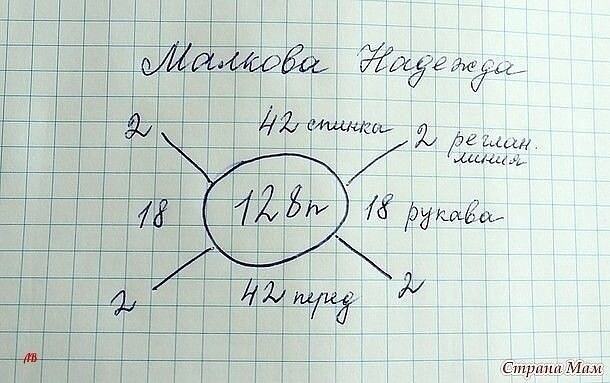 Малкова Надежда
2
42 спинка
2 реглан.
линия
18
128п
18 рукава
2
42 перед
2
МВ
Страна Мам